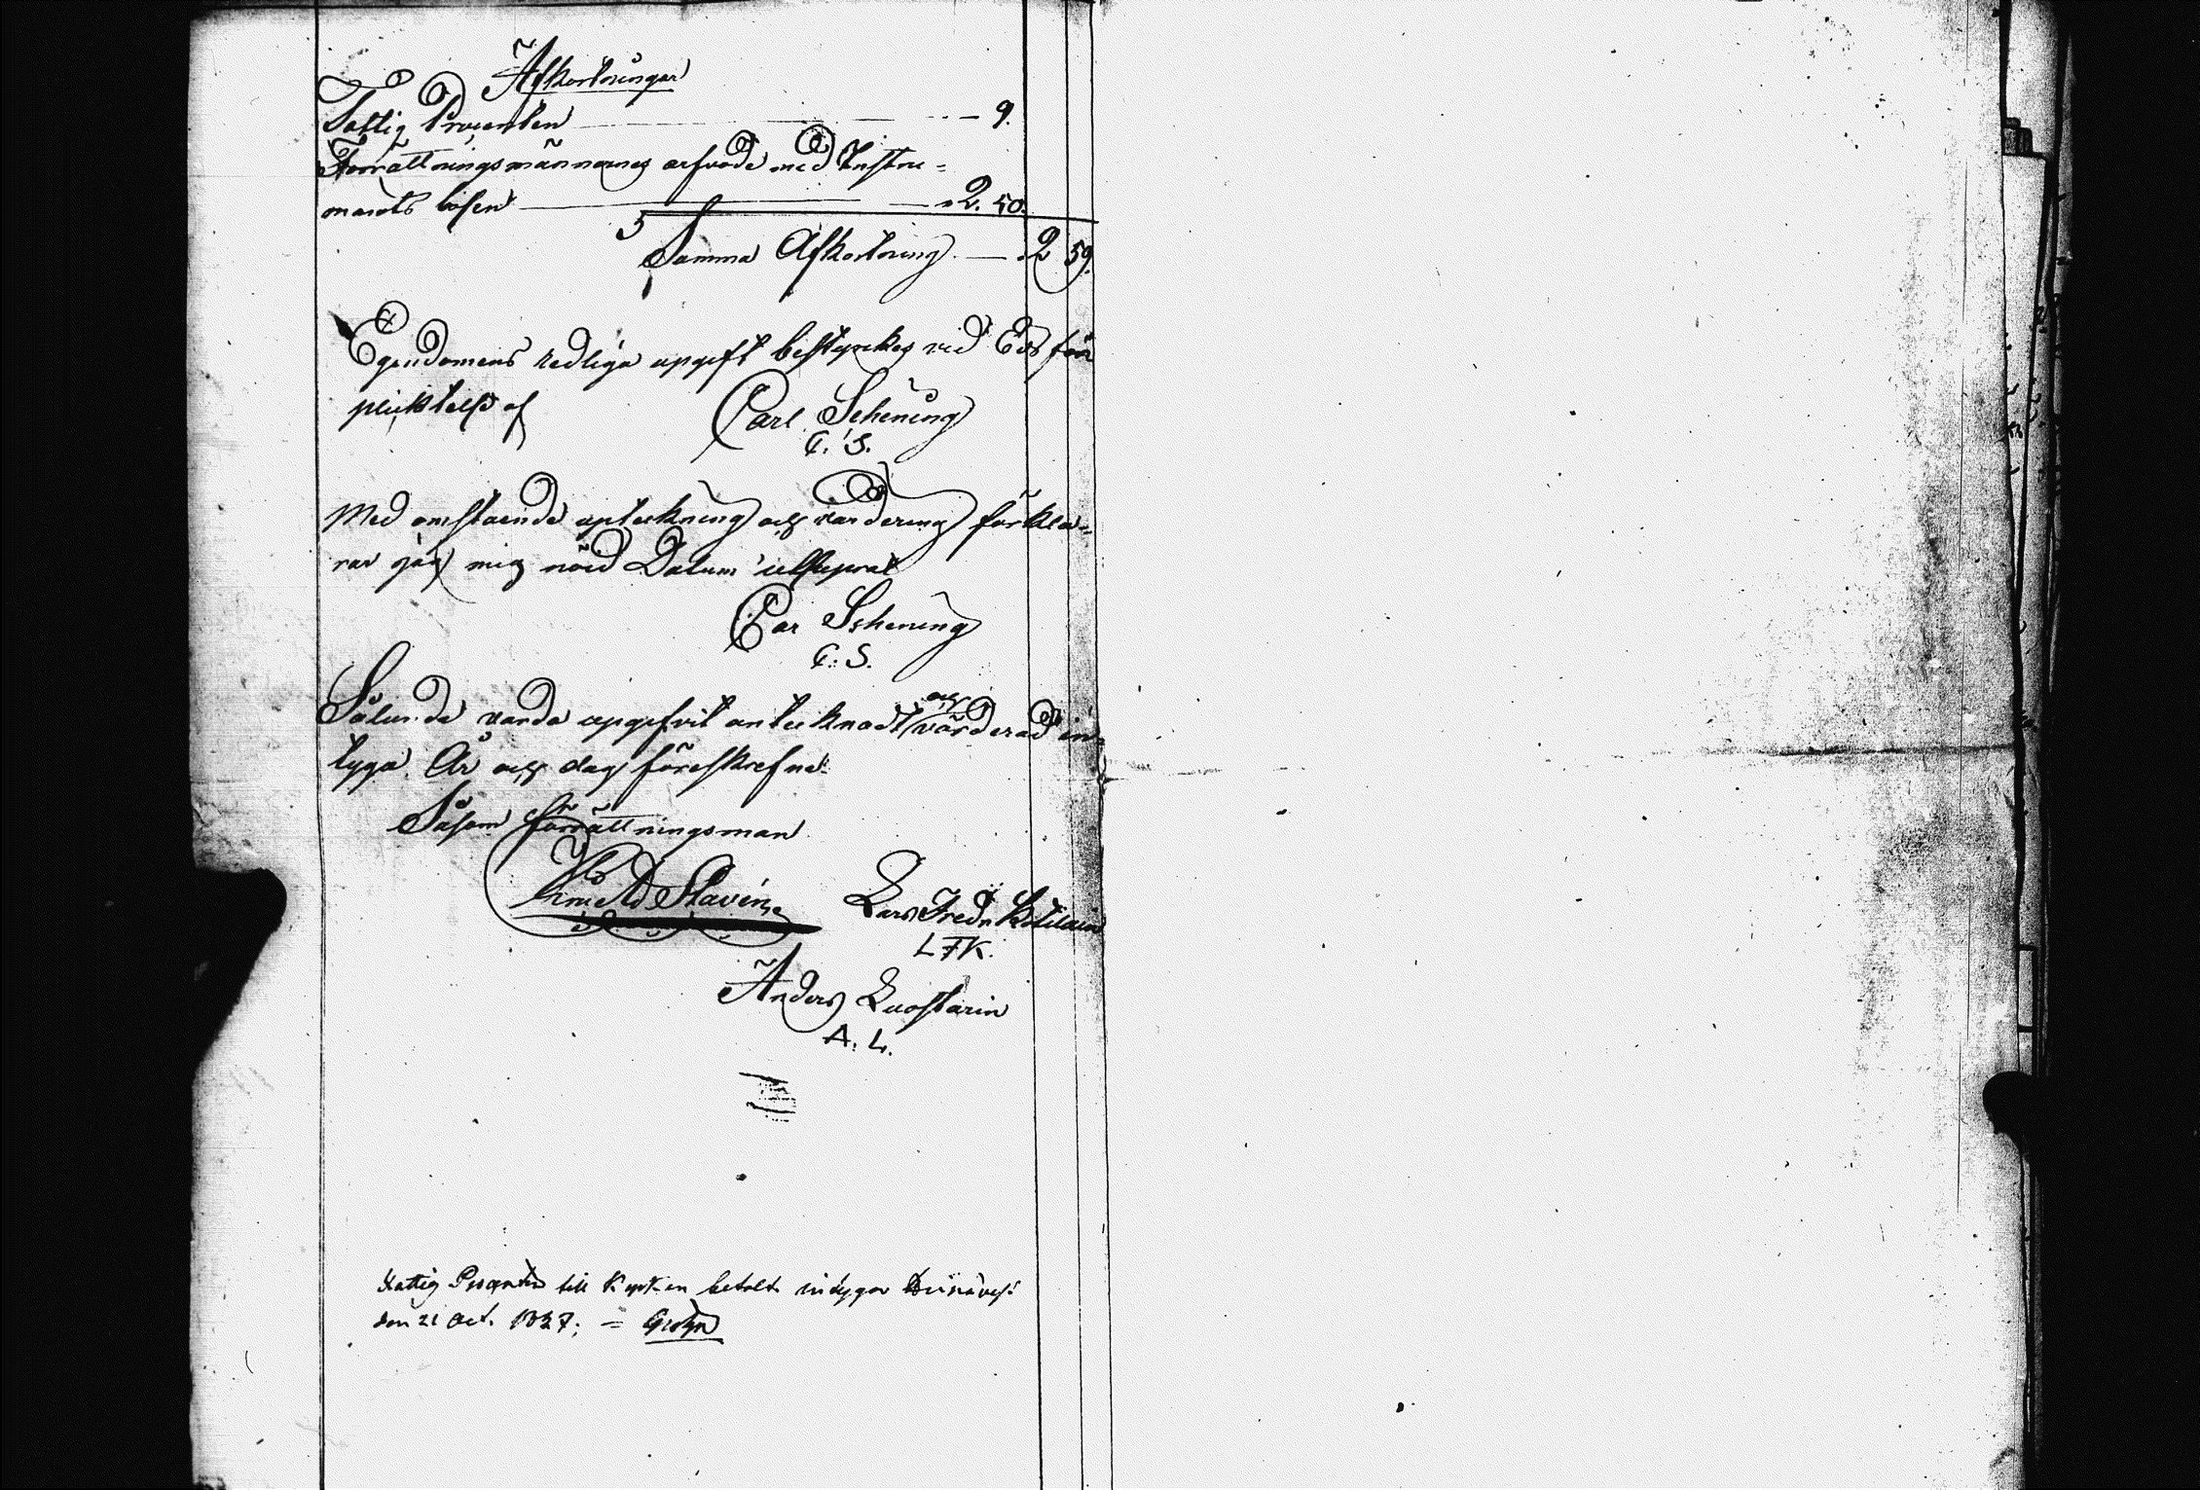 Afkortningar
Fattig Procenten — 9.
Förrättningsmännernes arfvode med Instru=
mentets lösen — 2. 50.
Summa Afkortning — 2 59.
Egendomens redliga upgift bestyrckes vid Eds för
plicktelse af Carl Schening
C. S.
Med omstaende upteckning och värdering förkla=
rar jag mig nöid Datum utsupra
Car Sshening
C: S.
Sålunda vara upgifvit antecknadt och värderad in=
tyga. År och dag föreskrefne.
Såsom förrättningsman
Lars Fredr
LFK.
Anders Luostarin
A. L.
Fattig Procenten till Kyrkan betalt intygar
den 21 Oct. 1837; =